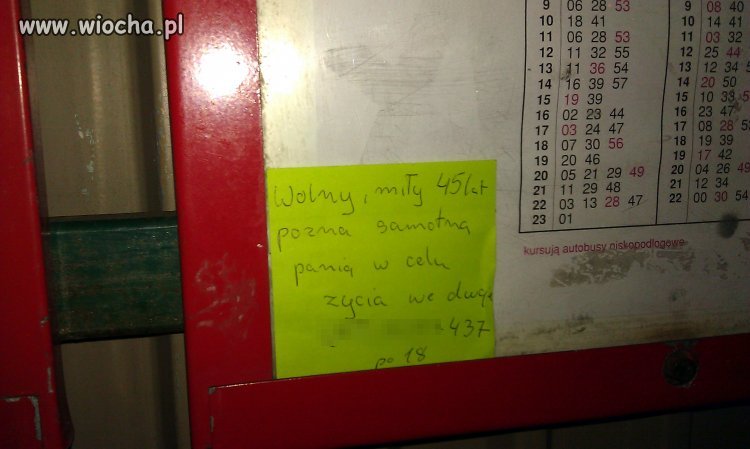 www.wiocha.pl
9 06 28 53
10 18 41
11 06 28 53
12 11 32 55
13 11 36 54
14 16 39 57
15 19 39
16 02 23 44
17 03 24 47
18 07 30 56
19 20 46
20 05 21 29 49
21 11 29 48
22 03 13 28 47
23 01
9 08 40
10 14 41
11 03 32
12 25 44
13 12 34
14 20 50
15 10 33
16 23 47
17 08 28
18 19 39
19 17 42
20 04 26 49
21 12 34
22 00 30 54
kursują autobusy niskopodłogowe
Wolny, miły 45 lat
pozna samotną
panią w celu
życia we dwoje
437
po 18